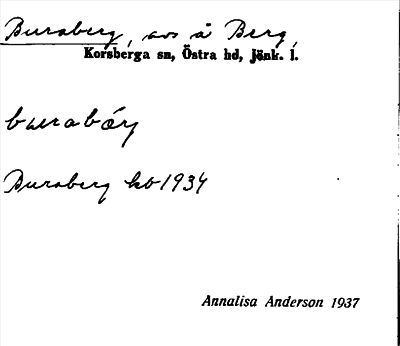 Buraberg, avs å Berg,
Korsberga sn, Östra hd, Jönk. l.
burabärj
Buraberg kb 1934
Annalisa Anderson 1937